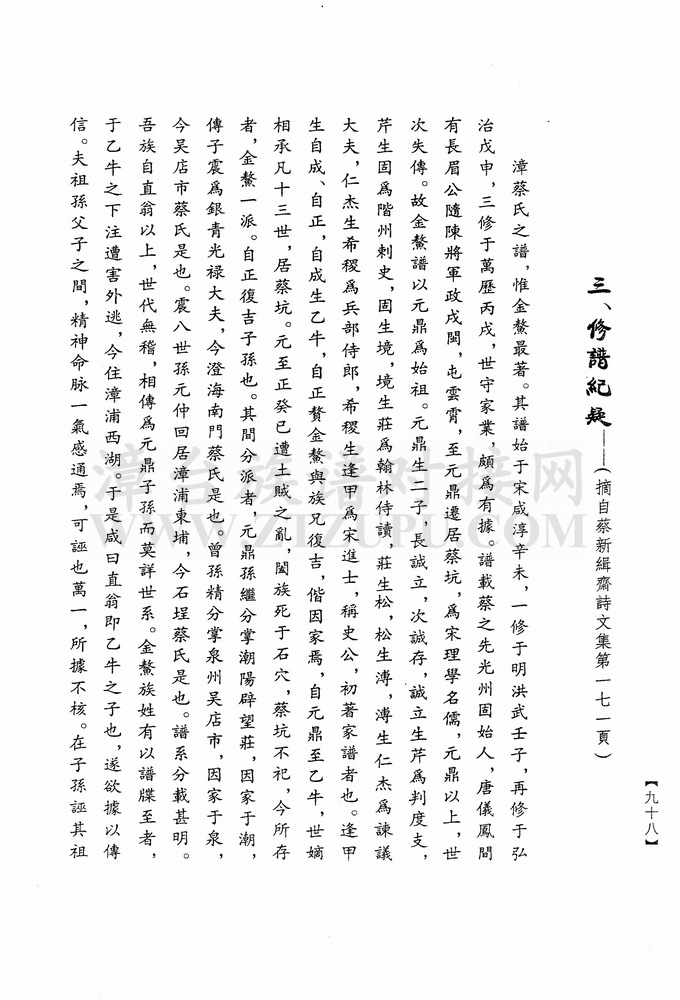 三、修譜紀疑——（摘自蔡新緝齋詩文集第一七一頁）
【九十八】
漳蔡氏之譜，惟金鰲最著。其譜始于宋咸淳辛未，一修于明洪武壬子，再修于弘
治戊申，三修于萬歷丙戌，世守家業，頗爲有據。譜載蔡之先光州固始人，唐儀鳳間
有長眉公隨陳將軍政戌閩，屯雲霄，至元鼎遷居蔡坑，爲宋理學名儒，元鼎以上，世
次失傳。故金鰲譜以元鼎爲始祖。元鼎生二子，長誠立，次誠存，誠立生芹爲判度支，
芹生固爲階州刺史，固生境，境生莊爲翰林侍讀，莊生松，松生溥，溥生仁杰爲諫議
大夫，仁杰生希稷爲兵部侍郎，希稷生逢甲爲宋進士，稱史公，初著家譜者也。逢甲
生自成、自正，自成生乙牛，自正贅金鰲與族兄復吉，偕因家焉，自元鼎至乙牛，世嫡
相承凡十三世，居蔡坑。元至正癸巳遭土賊之亂，闔族死于石穴，蔡坑不祀，今所存
者，金鰲一派。自正復吉子孫也。其間分派者，元鼎孫繼分掌潮陽辟望莊，因家于潮，
傳子震爲銀青光禄大夫，今澄海南門蔡氏是也。曾孫精分掌泉州吴店市，因家于泉，
今吴店市蔡氏是也。震八世孫元仲回居漳浦東埔，今石埕蔡氏是也。譜系分載甚明。
吾族自直翁以上，世代無稽，相傳爲元鼎子孫而莫詳世系。金鰲族姓有以譜牒至者，
于乙牛之下注遭害外逃，今住漳浦西湖。于是咸曰直翁即乙牛之子也，遂欲據以傳
信。夫祖孫父子之間，精神命脉一氣感通焉，可誣也萬一，所據不核。在子孫誣其祖
漳台族譜對接网
WWW.ZIZUPU.COM